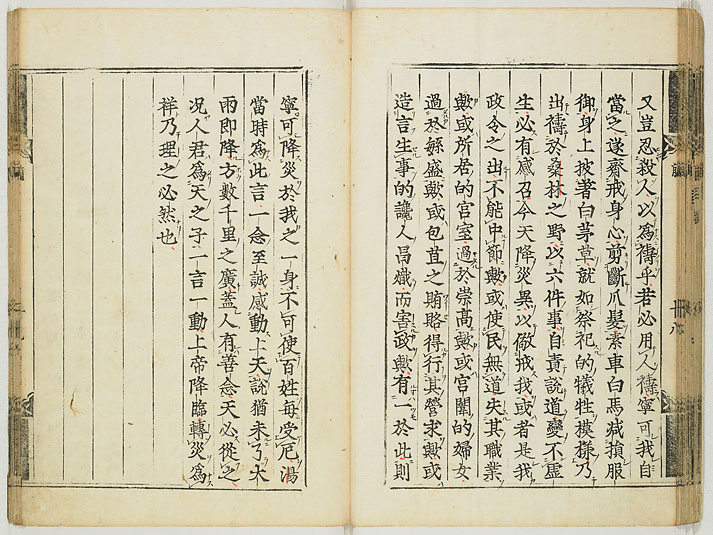 又豈忍殺人以為禱乎若必用人禱寧可我自
當之遂齋戒身心剪斷爪髮素車白馬減損服
御身上披著白茅草就如祭祀的犧牲模樣乃
出禱於桑林之野以六件事自責說道變不虛
生必有感召今天降災異以儆戒我或者是我
政令之出不能中節歟或使民無道失其職業
歟或所居的宮室過於崇高歟或宮闈的婦女
過於繁盛歟或包苴之賄賂得行其營求歟或
造言生事的讒人昌熾而害政歟有一於此則
寧可降災於我之一身不可使百姓每受厄湯
當時為此言一念至誠感動上天說猶未了大
雨即降方數千里之廣蓋人有善念天必從之
况人君為天之子一言一動上帝降臨轉災為
祥乃理之必然也